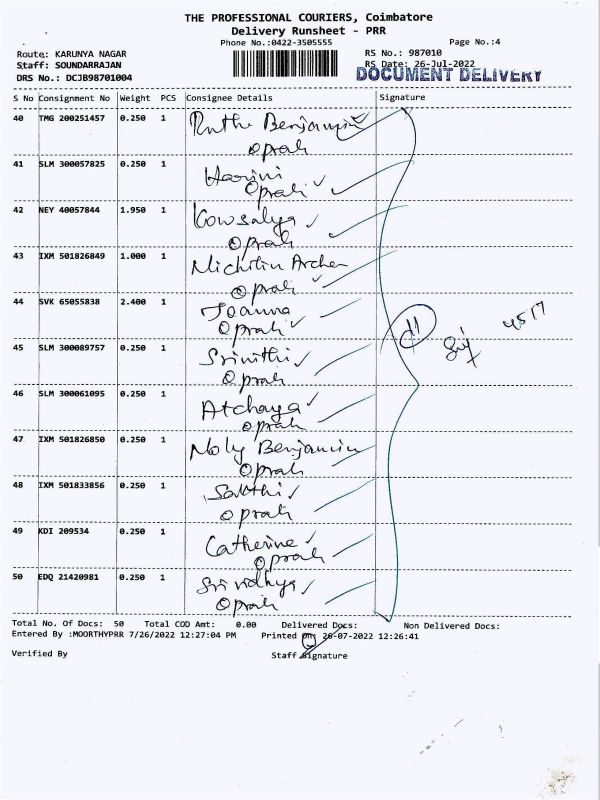 THE PROFESSIONAL COURIERS, Coimbatore
Delivery Runsheet - PRR
Phone No.:0422-3505555 Page No.:4
Route: KARUNYA NAGAR RS No.: 987010
Staff: SOUNDARRAJAN RS Date: 26-Jul-2022
DRS No.: DCJB98701004 DOCUMENT DELIVERY
S No Consignment No Weight PCS Consignee Details Signature
40 TMG 200251457 0.250 1 Ruthu Benjamin
Oprah
41 SLM 300057825 0.250 1 Harini
Oprah
42 NEY 40057844 1.950 1 Kowsalya
Oprah
43 IXM 501826849 1.000 1 Archer
Oprah
44 SVK 65055838 2.400 1 Joanna
Oprah
45 SLM 300089757 0.250 1 Srinithi
Oprah
46 SLM 300061095 0.250 1 Atchaya
Oprah
47 IXM 501826850 0.250 1 Noly Benjamin
Oprah
48 IXM 501833856 0.250 1 Sakthi
Oprah
49 KDI 209534 0.250 1 Catherine
Oprah
50 EDQ 21420981 0.250 1 Srividhya
Oprah
Total No. Of Docs: 50 Total COD Amt: 0.00 Delivered Docs: Non Delivered Docs:
Entered By :MOORTHYPRR 7/26/2022 12:27:04 PM Printed On: 26-07-2022 12:26:41
Verified By Staff Signature